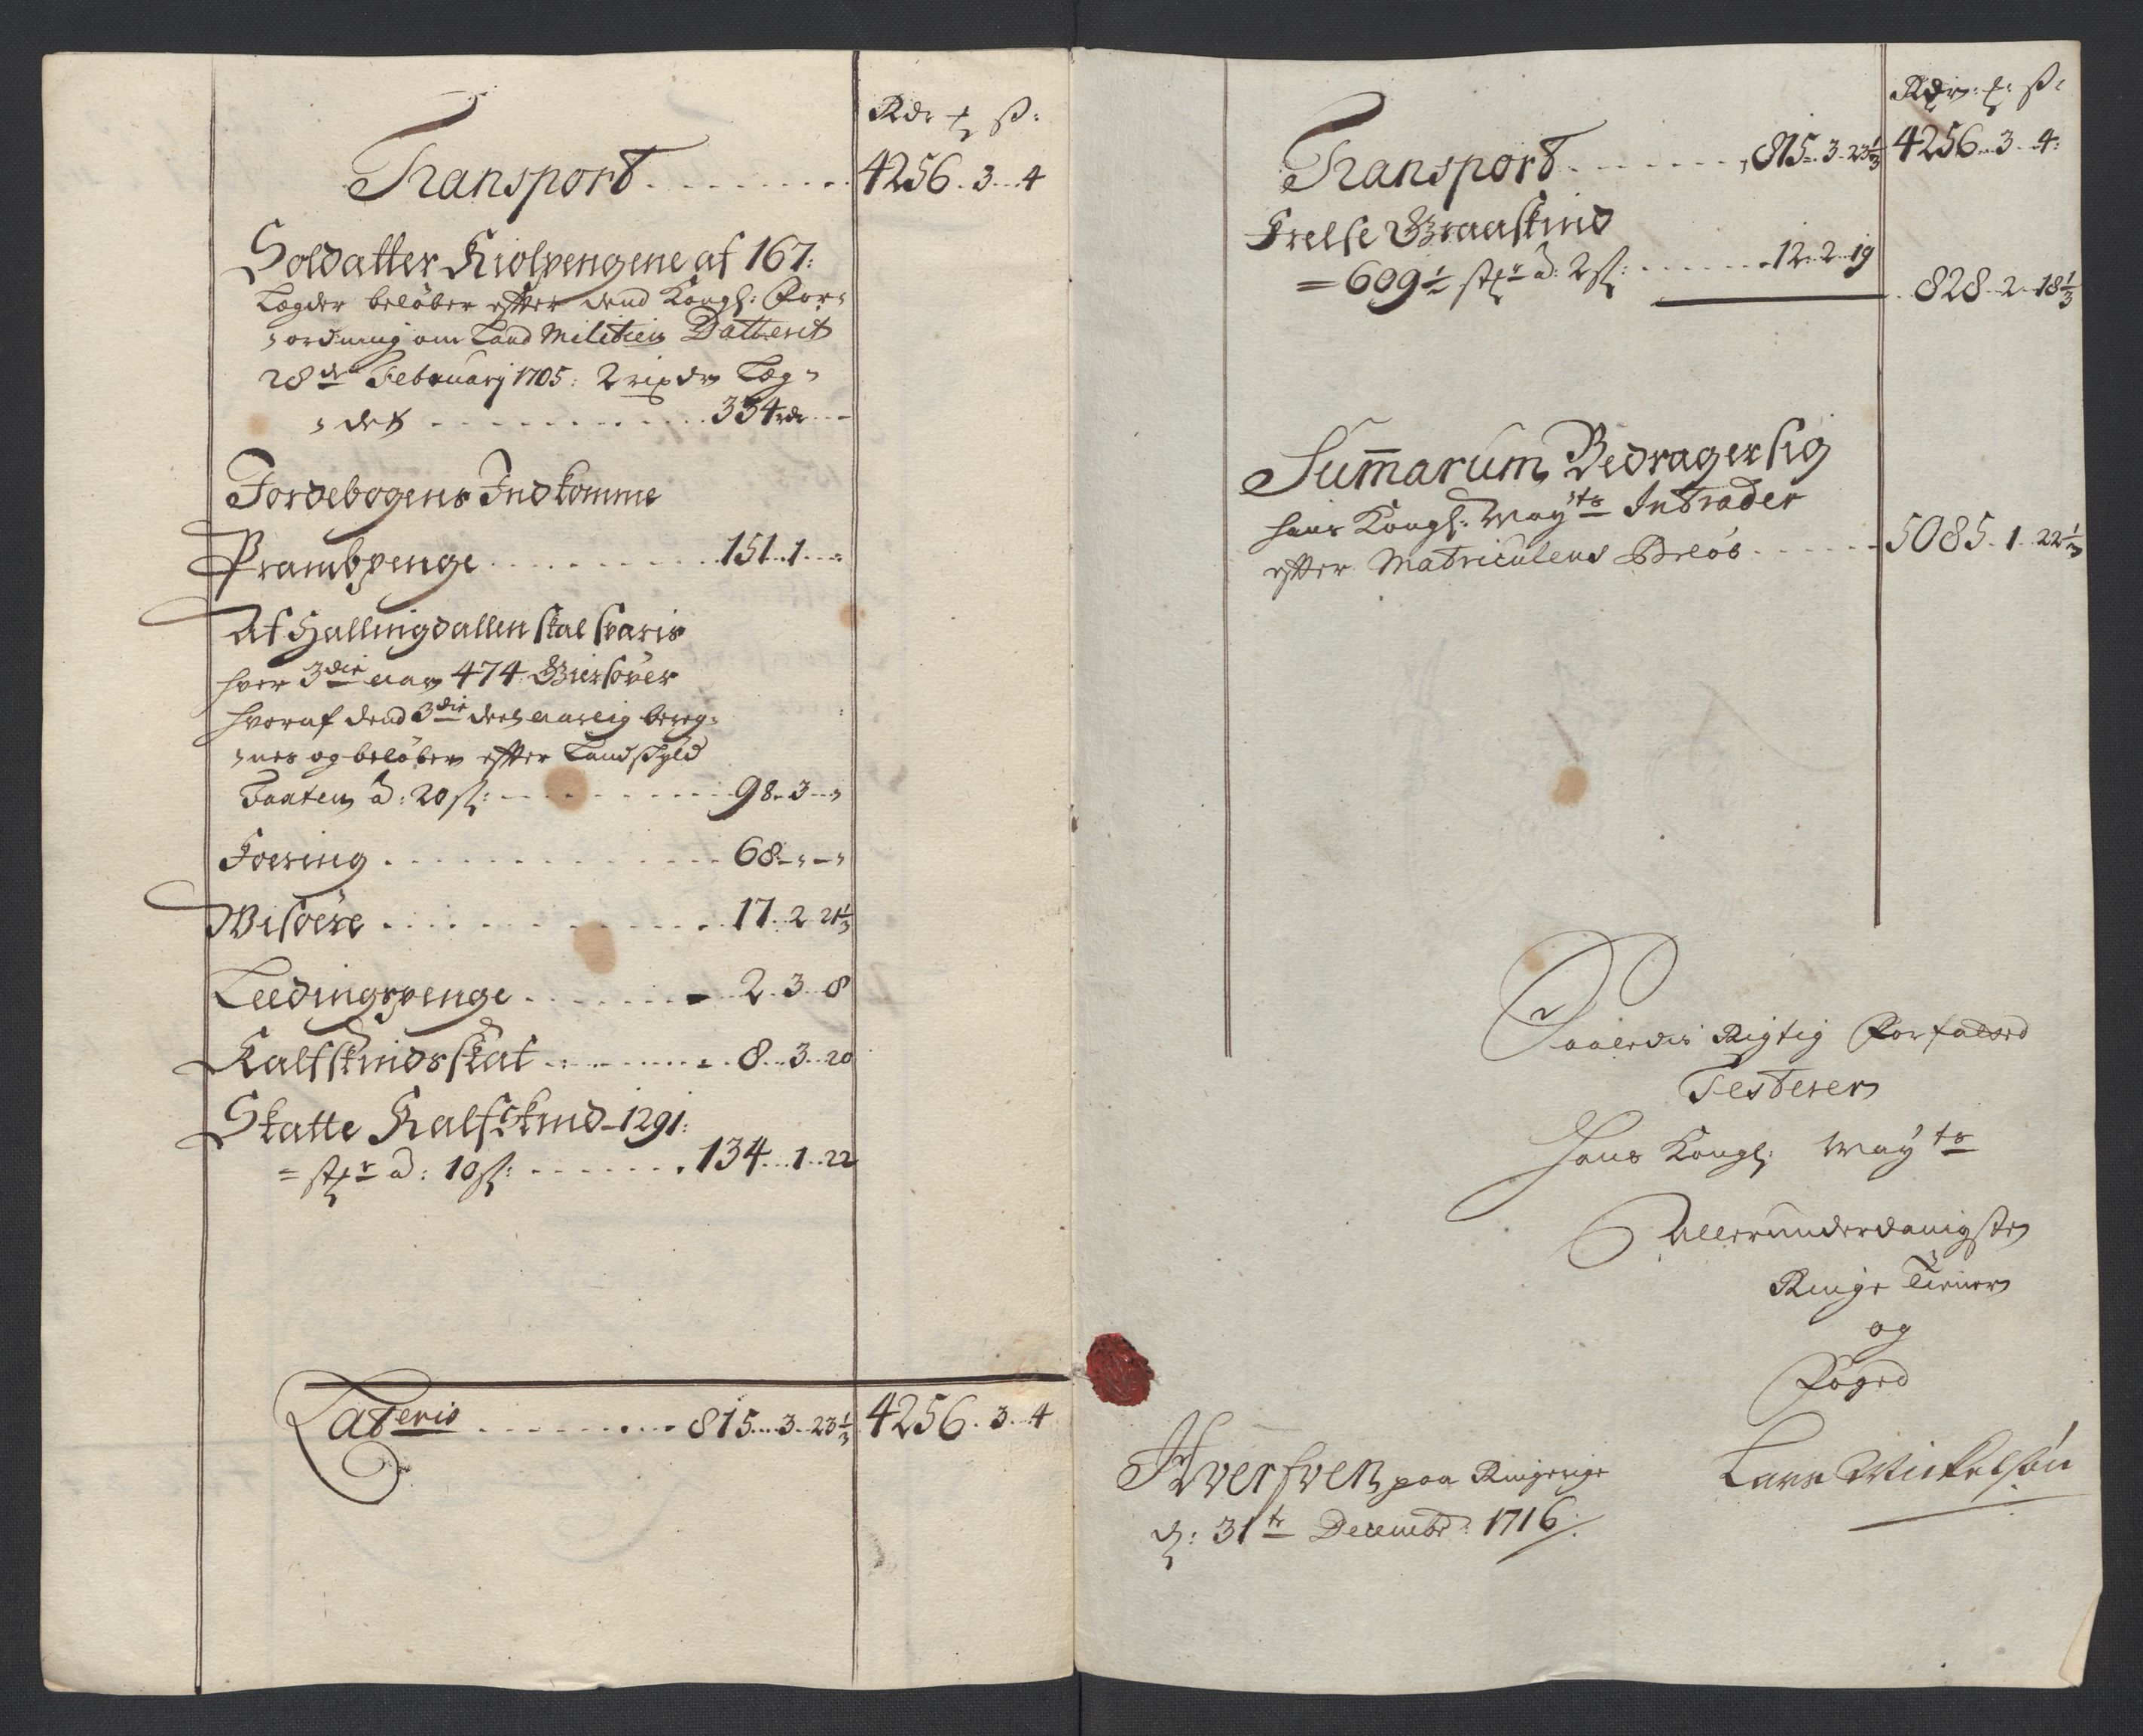 Rdr ƶ ß:
Transport . . . . . . . . 4256. 3. 4
Soldatter Kiolpengene af 167:
Legder beløber efter dend Kongl: For-
ordning om Land Militien Datterit
28de February 1705: 2 rixdr Leg-
det . . . . . . . . . 334 rdr - -
Jordebogens Indkomme
Prambpenge . . . . . . . 151. 1. -
Af Hallingdallen skal svaris
hver 3die aar 474 Biersøver
hvoraf dend 3die deel aarlig bereg-
nes og beløber efter Landskyld
Taxten á: 20 ß: . . . . . . 98. 3. -
Foering . . . . . . . . 68. - . -
Wisøere . . . . . . . . 17. 2. 21⅓
Leedingspenge . . . . . . 2. 3. 8
Kalfskindsskat . . . . . . 8. 3. 20
Skatte Kalfskind 1291:
= stxr á: 10 ß: . . . . . . 134. 1. 22
Lateris . . . . . . . 815. 3. 23⅓ 4256. 3. 4
Rdr: ƶ: ß:
Transport . . . . . . 815. 3. 23⅓ 4256. 3. 4:
Frelse Graaskind
= 609½ stxr á: 2 ß: . . . . . 12. 2. 19
828. 2. 18⅓
Summarum Bedrager sig
hans Kongl: Mayts Intrader
efter Matriculens Beløb . . . . . 5085. 1. 22⅓
Saaledis Rigtig Forfatted
Testerer
Hans Kongl: Mayts
Allerunderdanigste
Ringe Tiener
og
Foged
Lars Mickelsøn
Hverfven paa Ringerige
d: 31te Decembr: 1716: